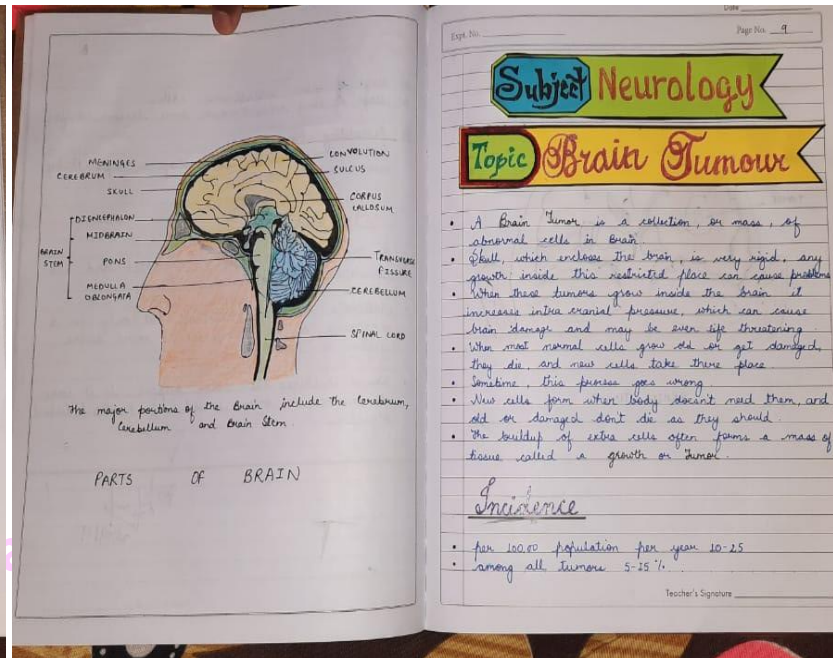 MENINGES
CEREBRUM
SKULL
DIENCEPHALON
MIDBRAIN
BRAIN
STEM
PONS
MEDULLA
OBLONGATA
CONVOLUTION
SULCUS
CORPUS
CALLOSUM
TRANSVERSE
FISSURE
CEREBELLUM
SPINAL CORD
The major portions of the Brain include the Cerebrum,
Cerebellum and Brain Stem.
PARTS OF BRAIN
Date
Expt. No.
Page No. 9
Subject Neurology
Topic Brain Tumour
• A Brain Tumor is a collection, or mass, of
abnormal cells in Brain
• Skull, which encloses the brain, is very rigid, any
growth inside this restricted place can cause problems
• When these tumors grow inside the brain it
increases intra cranial pressure, which can cause
brain damage and may be even life threatening.
• When most normal cells grow old or get damaged,
they die, and new cells take there place.
• Sometime, this process goes wrong.
• New cells form when body doesn't need them, and
old or damaged don't die as they should.
• The buildup of extra cells often forms a mass of
tissue called a growth or Tumor.
Incidence
• per 100.00 population per year 10-25
• among all tumors 5-15 %.
Teacher's Signature